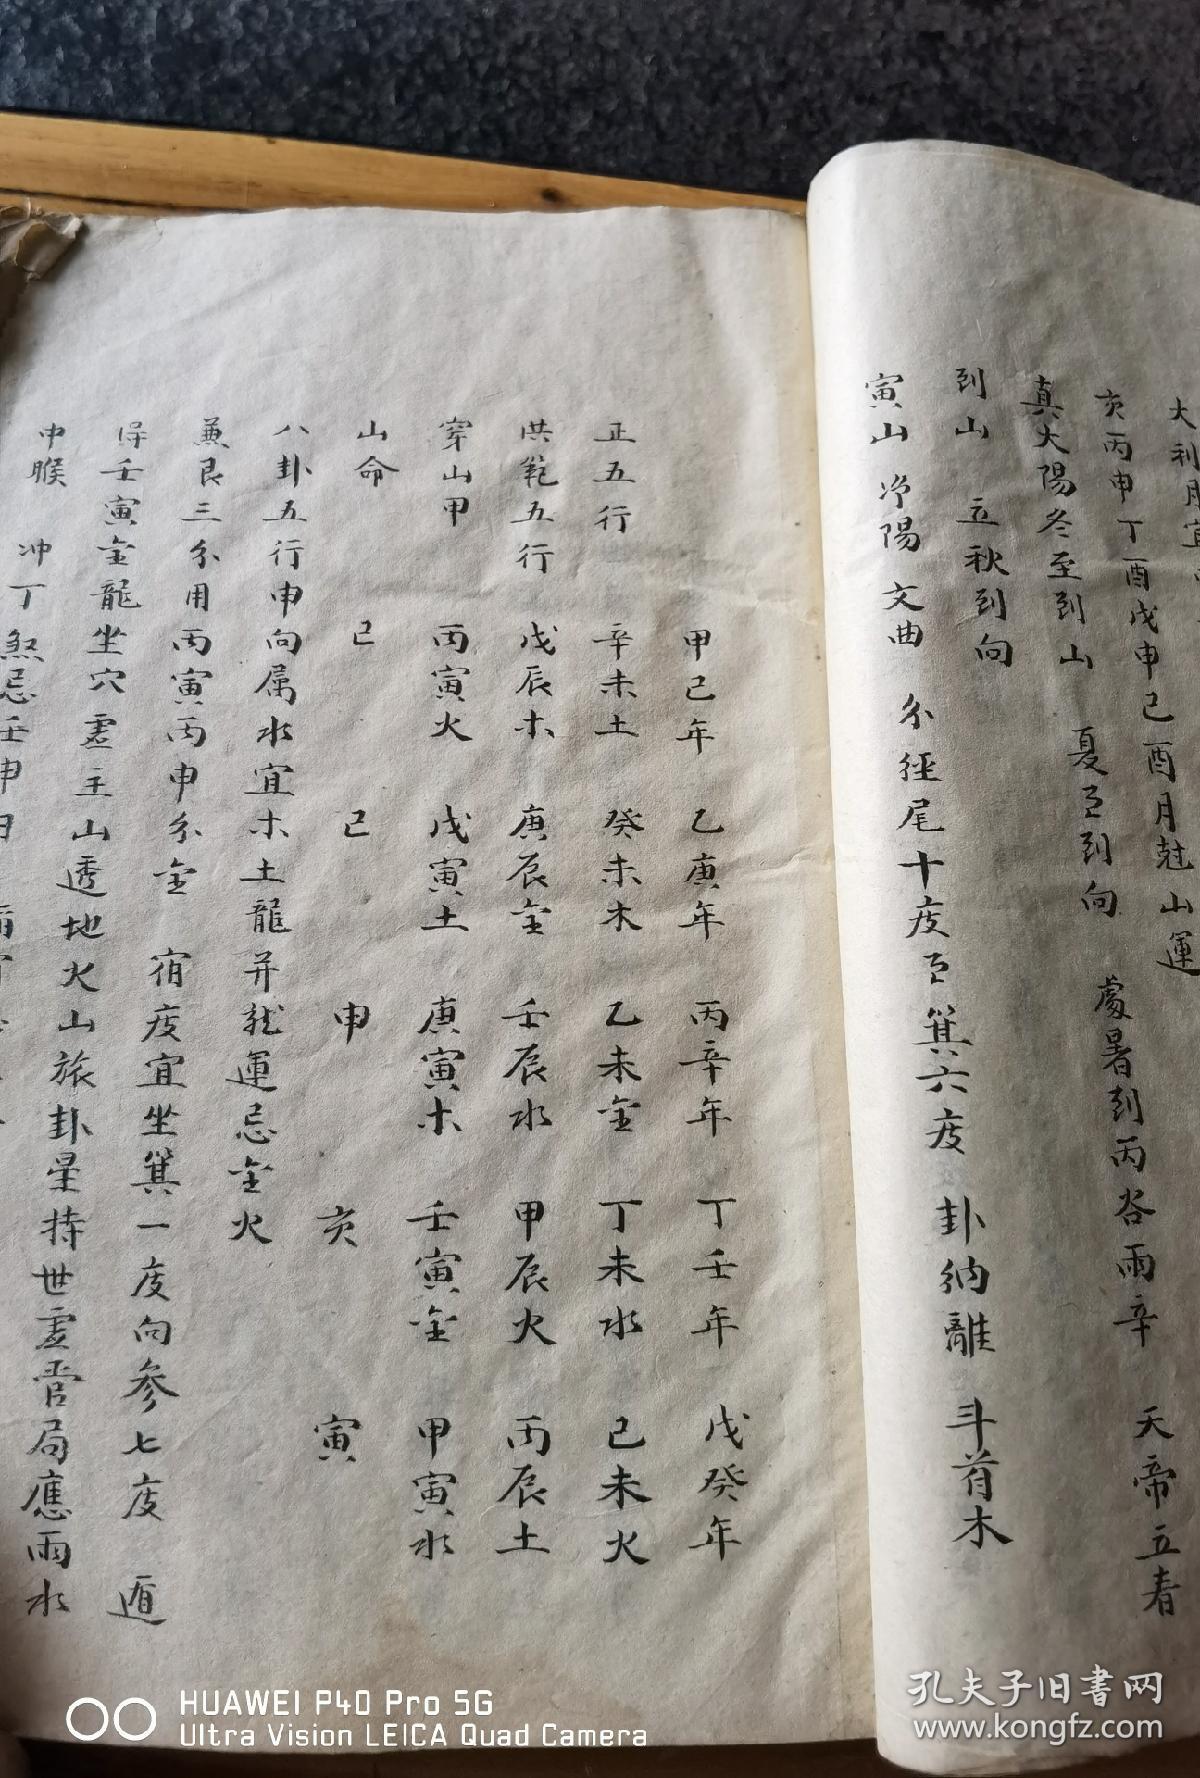 大利月宜
亥丙申丁酉戊申己酉月尅山運
真太陽冬至到山 夏至到向 處暑到丙谷雨辛 天帝立春
到山 立秋到向
寅山 净陽 文曲 分經尾十度至箕六度 卦納離 斗首木
甲己年 乙庚年 丙辛年 丁壬年 戊癸年
正五行 辛未土 癸未木 乙未金 丁未水 己未火
洪範五行 戊辰木 庚辰金 壬辰水 甲辰火 丙辰土
穿山甲 丙寅火 戊寅土 庚寅木 壬寅金 甲寅水
山命 己 己 申 亥 寅
八卦五行申向属水宜木土龍并龍運忌金火
兼艮三分用丙寅丙申分金 宿度宜坐箕一度向参七度 遁
得壬寅金龍坐穴 主山透地火山旅卦 持世 局應雨水
中 冲丁煞忌壬申日
HUAWEI P40 Pro 5G
Ultra Vision LEICA Quad Camera
孔夫子旧書网
www.kongfz.com